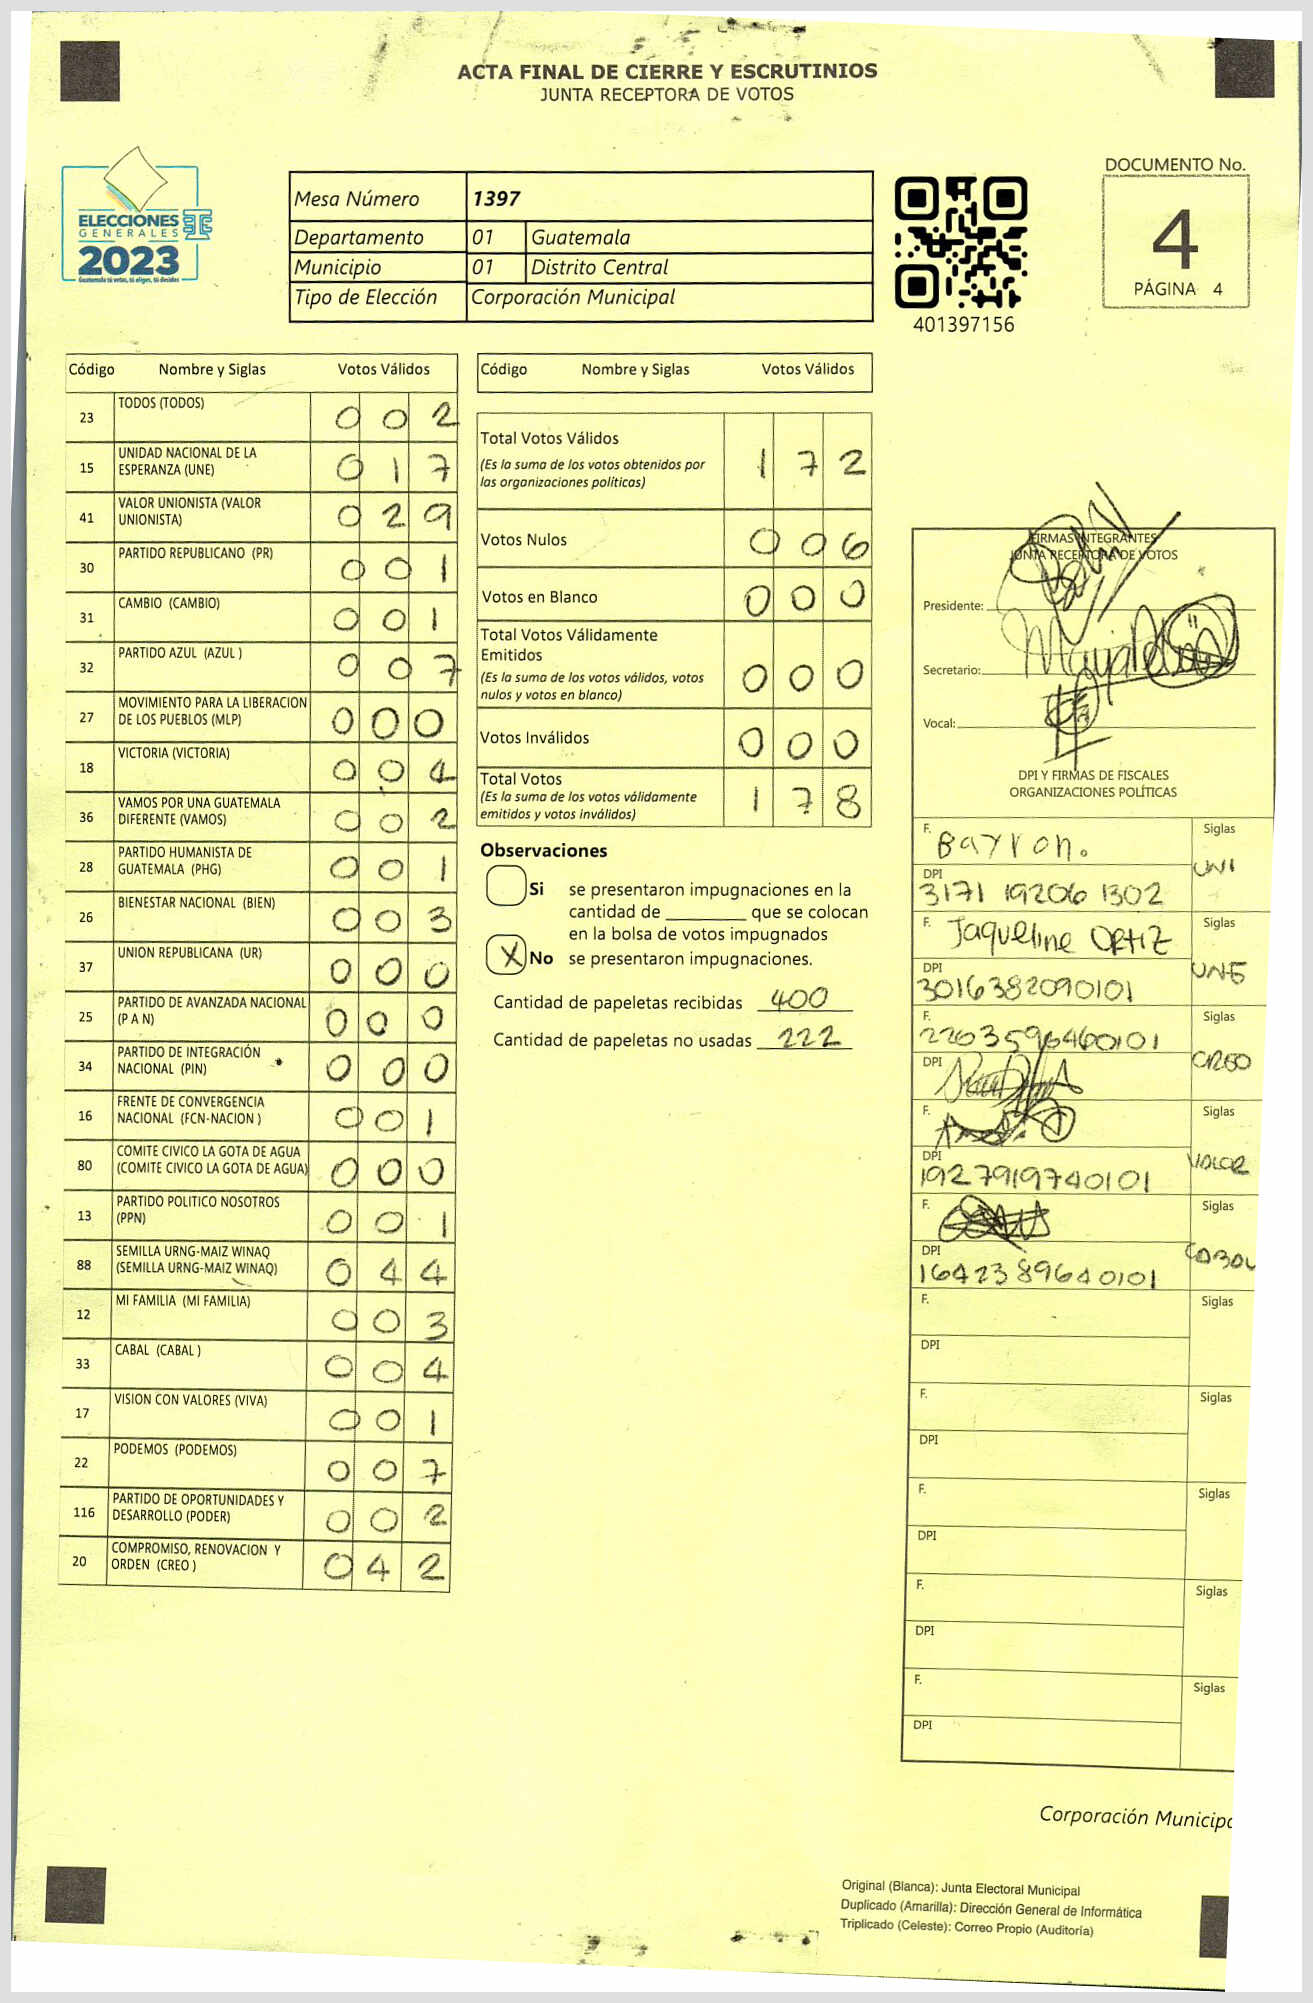 ACTA FINAL DE CIERRE Y ESCRUTINIOS
JUNTA RECEPTORA DE VOTOS
ELECCIONES
GENERALES
2023
Guatemala tú votas, tú eliges, tú decides
Mesa Número 1397
Departamento 01 Guatemala
Municipio 01 Distrito Central
Tipo de Elección Corporación Municipal
401397156
DOCUMENTO No.
4
PÁGINA 4
Código Nombre y Siglas Votos Válidos
23 TODOS (TODOS) 0 0 2
15 UNIDAD NACIONAL DE LA
ESPERANZA (UNE) 0 1 7
41 VALOR UNIONISTA (VALOR
UNIONISTA) 0 2 9
30 PARTIDO REPUBLICANO (PR) 0 0 1
31 CAMBIO (CAMBIO) 0 0 1
32 PARTIDO AZUL (AZUL ) 0 0 7
27 MOVIMIENTO PARA LA LIBERACION
DE LOS PUEBLOS (MLP) 0 0 0
18 VICTORIA (VICTORIA) 0 0 4
36 VAMOS POR UNA GUATEMALA
DIFERENTE (VAMOS) 0 0 2
28 PARTIDO HUMANISTA DE
GUATEMALA (PHG) 0 0 1
26 BIENESTAR NACIONAL (BIEN) 0 0 3
37 UNION REPUBLICANA (UR) 0 0 0
25 PARTIDO DE AVANZADA NACIONAL
(P A N) 0 0 0
34 PARTIDO DE INTEGRACIÓN
NACIONAL (PIN) 0 0 0
16 FRENTE DE CONVERGENCIA
NACIONAL (FCN-NACION ) 0 0 1
80 COMITE CIVICO LA GOTA DE AGUA
(COMITE CIVICO LA GOTA DE AGUA) 0 0 0
13 PARTIDO POLITICO NOSOTROS
(PPN) 0 0 1
88 SEMILLA URNG-MAIZ WINAQ
(SEMILLA URNG-MAIZ WINAQ) 0 4 4
12 MI FAMILIA (MI FAMILIA) 0 0 3
33 CABAL (CABAL ) 0 0 4
17 VISION CON VALORES (VIVA) 0 0 1
22 PODEMOS (PODEMOS) 0 0 7
116 PARTIDO DE OPORTUNIDADES Y
DESARROLLO (PODER) 0 0 2
20 COMPROMISO, RENOVACION Y
ORDEN (CREO ) 0 4 2
Código Nombre y Siglas Votos Válidos
Total Votos Válidos 1 7 2
(Es la suma de los votos obtenidos por
las organizaciones políticas)
Votos Nulos 0 0 6
Votos en Blanco 0 0 0
Total Votos Válidamente
Emitidos 0 0 0
(Es la suma de los votos válidos, votos
nulos y votos en blanco)
Votos Inválidos 0 0 0
Total Votos 1 7 8
(Es la suma de los votos válidamente
emitidos y votos inválidos)
Observaciones
Si se presentaron impugnaciones en la
cantidad de ________ que se colocan
en la bolsa de votos impugnados
X No se presentaron impugnaciones.
Cantidad de papeletas recibidas 400
Cantidad de papeletas no usadas 222
FIRMAS INTEGRANTES
JUNTA RECEPTORA DE VOTOS
Presidente:
Secretario:
Vocal:
DPI Y FIRMAS DE FISCALES
ORGANIZACIONES POLÍTICAS
F. Bayron. Siglas
UNI
DPI
3171 19206 1302
F. Jaqueline ORTIZ Siglas
UNE
DPI
3016382090101
F. Siglas
2203596460101
CREO
DPI
F. Siglas
VALOR
DPI
1927919740101
F. Siglas
CABAL
DPI
1642389640101
F. Siglas
DPI
F. Siglas
DPI
F. Siglas
DPI
F. Siglas
DPI
F. Siglas
DPI
Corporación Municipa
Original (Blanca): Junta Electoral Municipal
Duplicado (Amarilla): Dirección General de Informática
Triplicado (Celeste): Correo Propio (Auditoría)